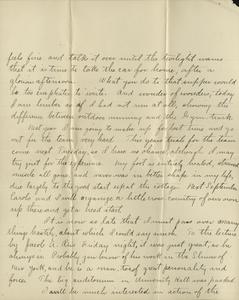 feels fine and talk it over until the twilight warns
that it is time to take the car for home, after a
glorious afternoon. What you do to that supper would
be inexpedient to write. And wonder of wonders, today
I am limber as if I had not run at all, showing the
difference between outdoor running and the gym track.
Next year I am going to make up for lost time and go
out for the team very hard. This years trials for the team
come next Tuesday, so I have no chance although I may
try just for the experience. My foot is entirely healed, strained
muscle all gone, and never was in better shape in my life,
due largely to the good start I got at the cottage. Next September
Carols and I will organize a little cross country of our own
up there and get a head start.
I am in now so late that I must pass over many
things hastily, about which I could say much. To the lecture
by Jacob A. Riis Friday night, it was just great, as he
always is. Probably you know of his work in the Slums of
New York, and he is a man too of great personality and
force. The big auditorium in University Hall was packed
I will be much interested in action of the